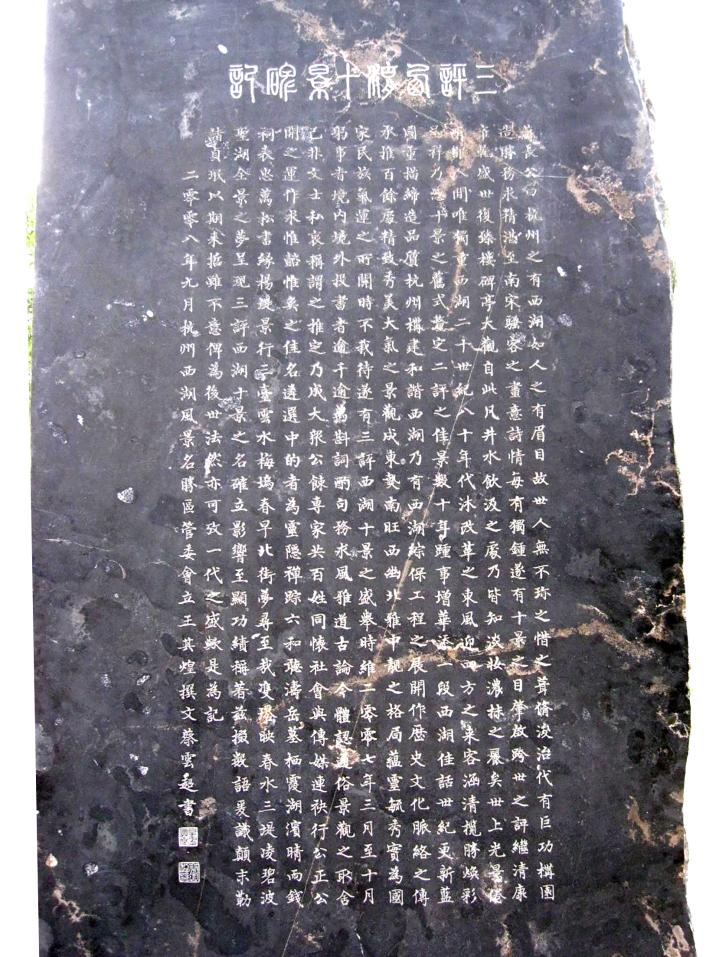 三評西湖十景碑記
蘇長公曰杭州之有西湖如人之有眉目故世人無不珍之惜之葺脩浚治代有巨功構園
造勝務求精湛至南宋騷客之畫意詩情每有獨鍾遂有十景之目肇啟跨世之評繼清康
雍乾盛世復臻樓碑亭大觀自此凡井水飲汲之處乃皆知淡妝濃抹之麗矣世上光景倐
人間唯獨重西湖二十世紀八十年代沐改革之東風迎四方之來客涵清攬勝煥彩
祥乃以十景之舊式藂定二評之佳景數十年踵事增華添一段西湖佳話世紀更新藍
圖重描締造品質杭州構建和諧西湖乃有西湖綜保工程之展開作歷史文化脈絡之傳
承推百餘處精致秀美大氣之景觀成東熱南旺西幽北雅中靚之格局蘊靈毓秀實為國
家民族氣運之所開時不我待遂有三評西湖十景之盛舉時維二零零七年三月至十月
躬事者境內境外投書者逾千逾萬斟詞酌句務求風雅道古論今體認通俗景觀之取舍
已非文士和衷稱謂之推定乃成大衆公餗專家共百姓同懷社會與傳媒連袂行公正公
開之運作求惟諂惟美之佳名遴選中的者為靈隱禪踪六和聽濤岳墓栖霞湖濱晴雨錢
祠表忠萬松書緣楊堤景行三臺雲水梅塢春早北街夢尋至我雙隄映春水三堤凌碧波
聖湖全景之夢呈現三評西湖十景之名確立影響至顯功績稱著茲掇數語爰識顛末勒
諸貞珉以期來哲雖不意俾為後世法然亦可致一代之盛歟是為記
二零零八年九月杭州西湖風景名勝區管委會立王其煌撰文蔡雲超書